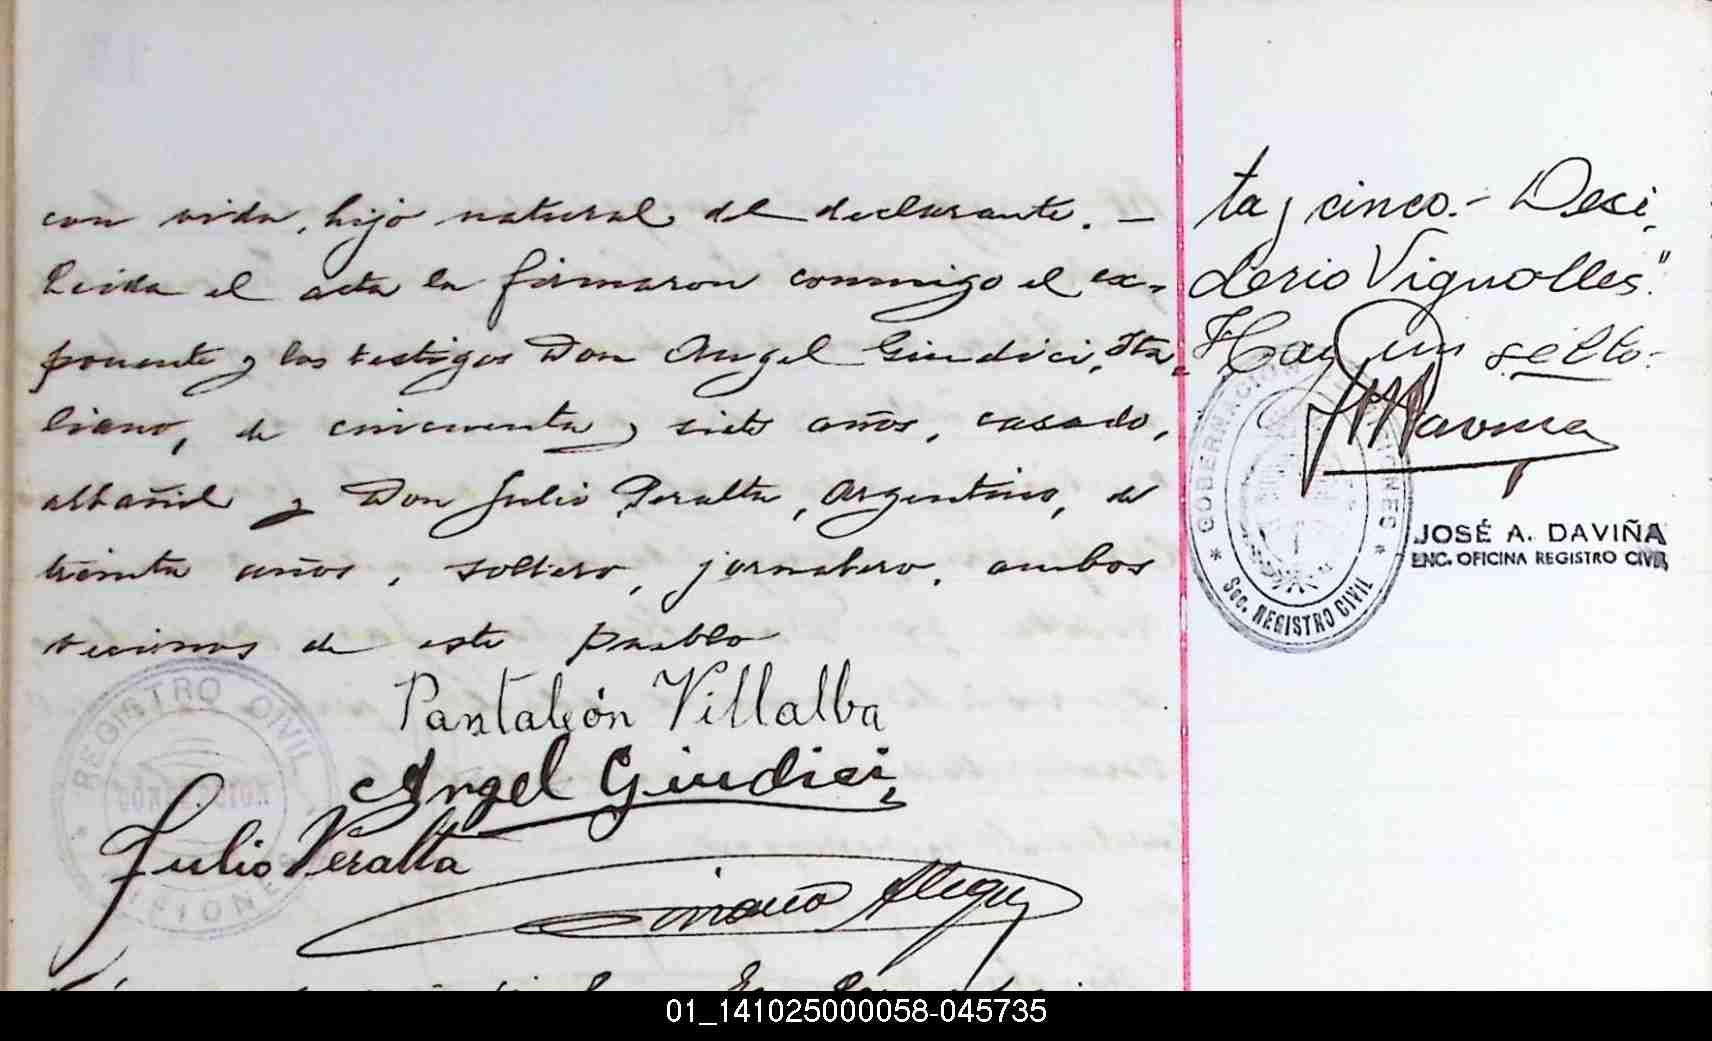 con vida, hijo natural del declarante. –
Leida el acta la firmaron conmigo el ex-
ponente y los testigos Don Angel Giudici, Ita-
liano, de cincuenta y siete años, casado,
albañil y Don Julio Peralta, Argentino, de
treinta años, soltero, jornalero, ambos
vecinos de este pueblo
Pantaleón Villalba
Angel Giudici
Julio Peralta
REGISTRO CIVIL
ta y cinco.- Desi-
derio Vignolles."
Hay un sello.-
GOBERNACION
Sec. REGISTRO CIVIL
JOSÉ A. DAVIÑA
ENC. OFICINA REGISTRO CIVIL
01_141025000058-045735